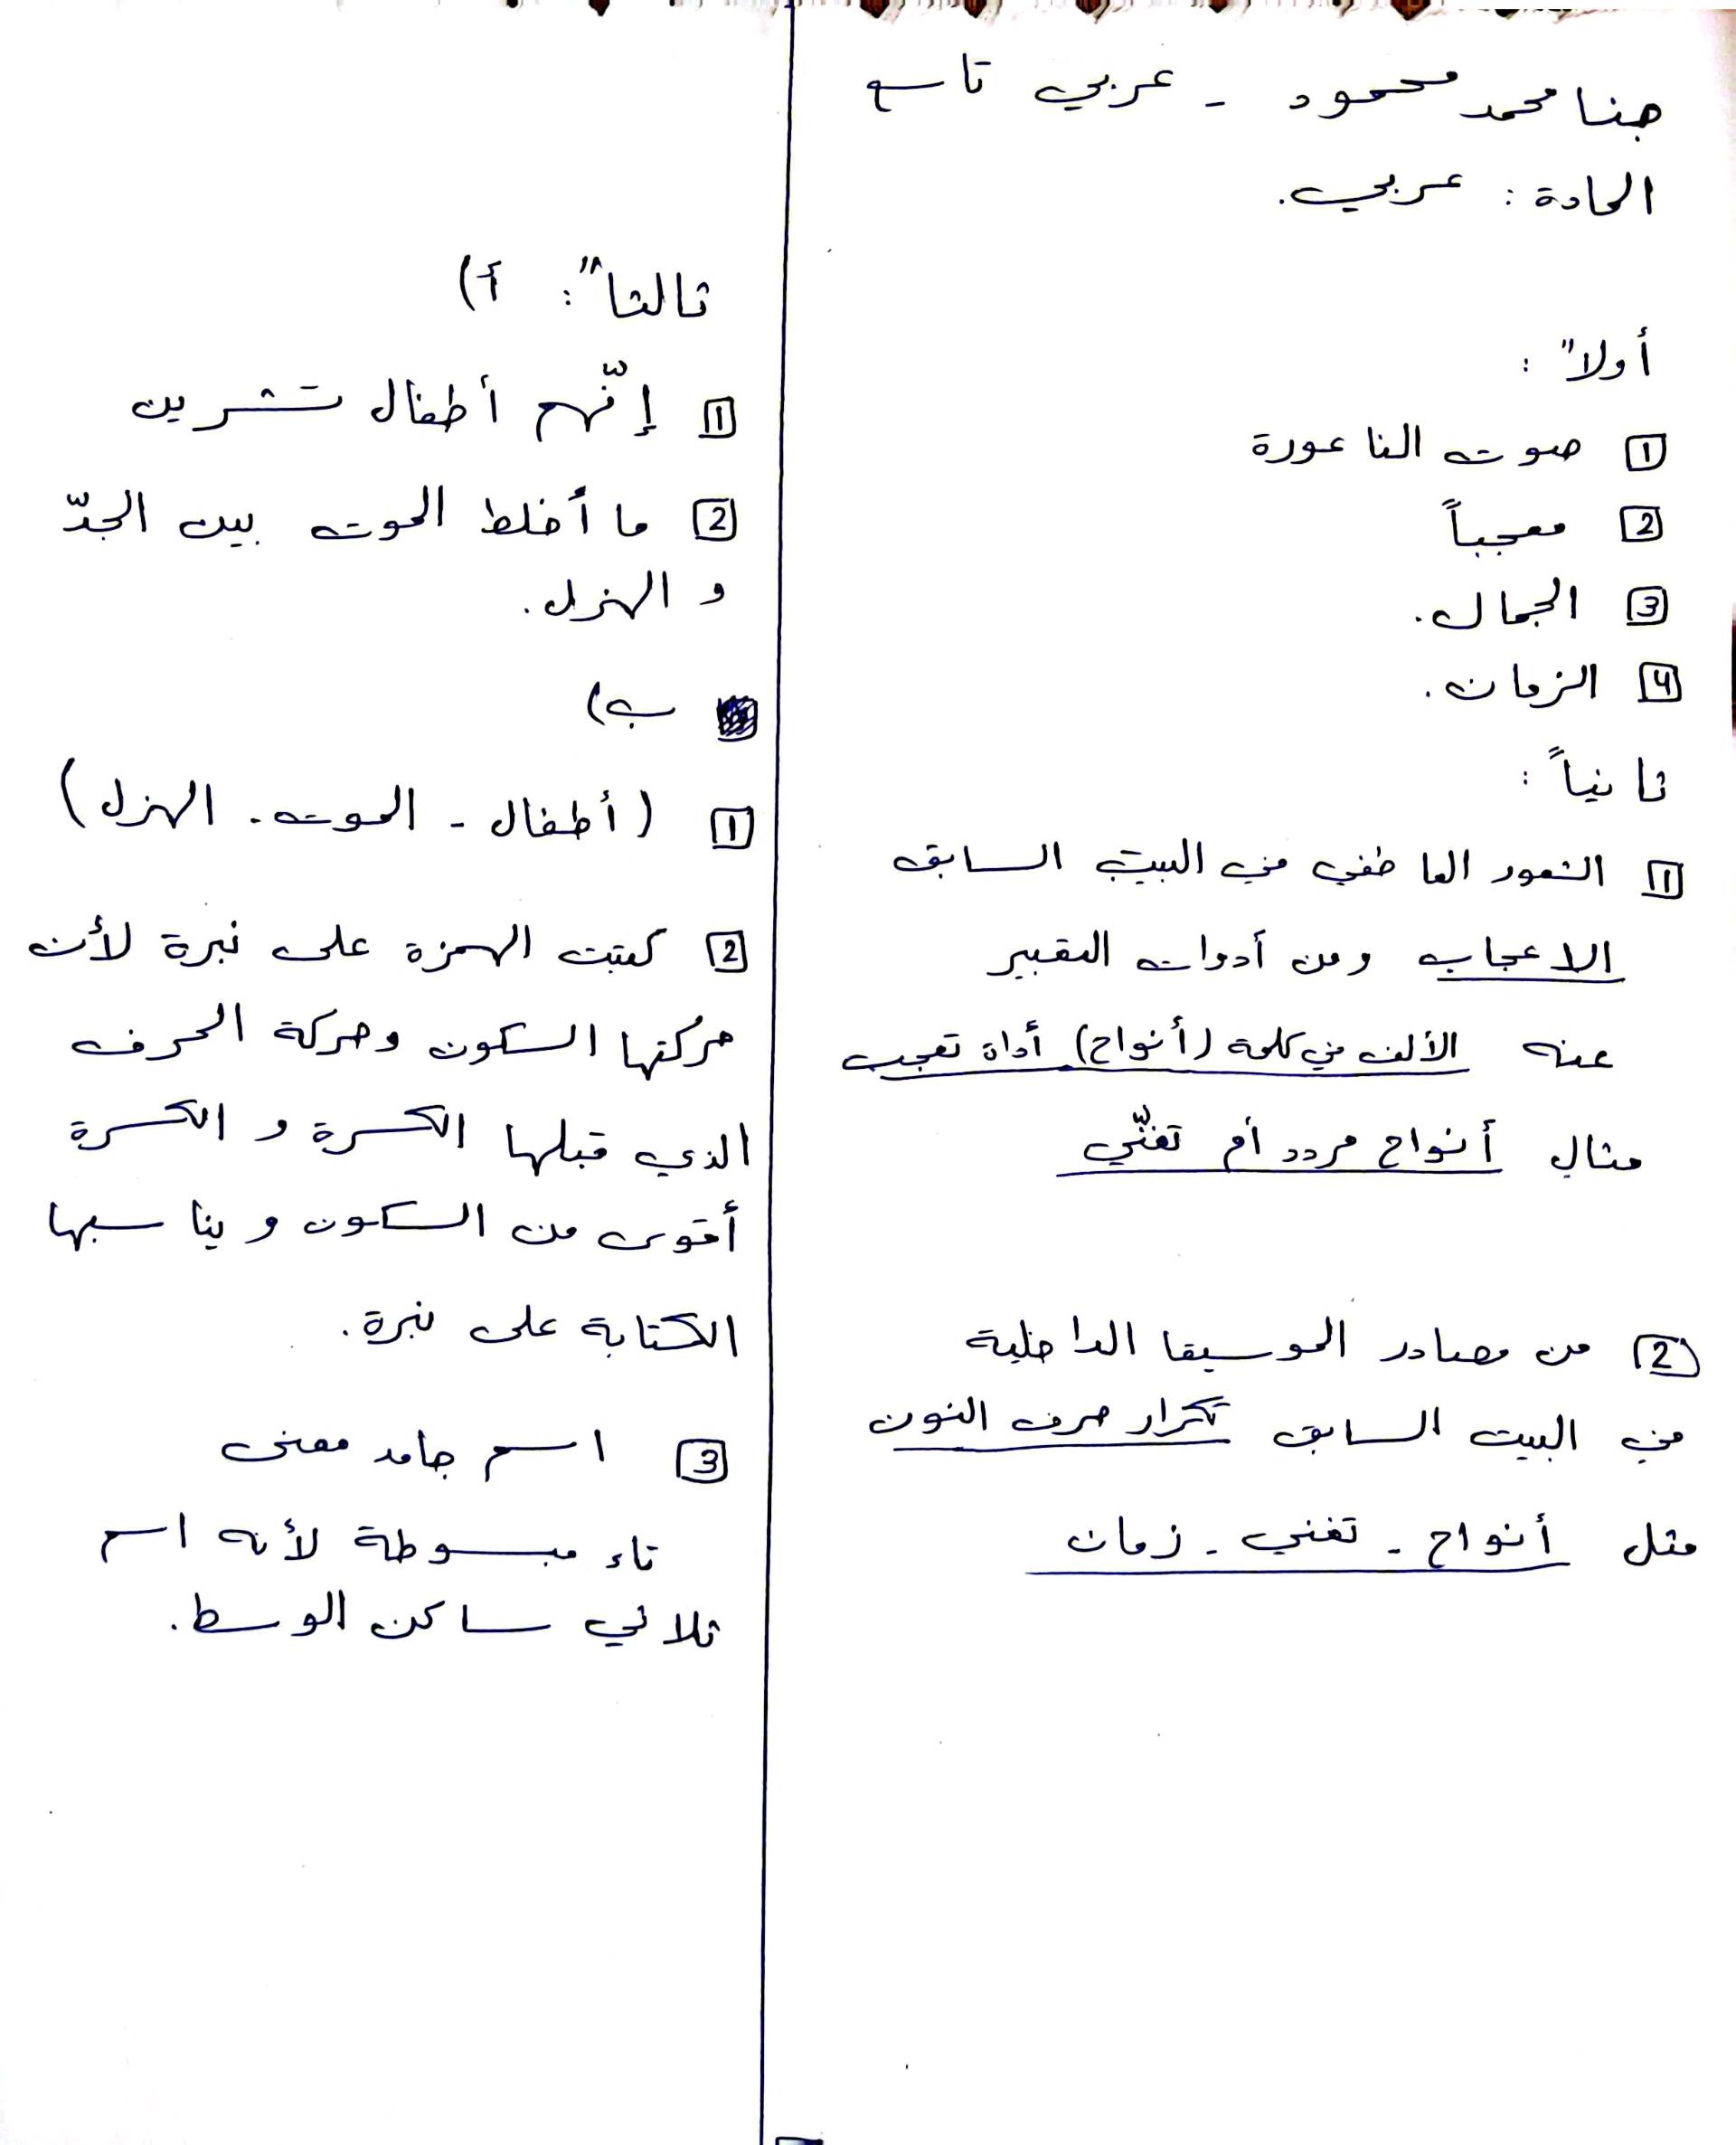 جنا محمد محمود - عربي تاسع
المادة : عربي.
أولا" :
1 صوت الناعورة
2 معجباً
3 الجمال.
4 الزمان.
ثانياً :
1 الشعور العاطفي في البيت السابق
الاعجاب ومن أدوات التعبير
عنه الألف في كلمة (أنواح) أداة تعجب
مثال أنواح مردد أم تغنّي
2 من مصادر الموسيقا الداخلية
في البيت السابق تكرار حرف النون
مثل أنواح - تغني - زمان
ثالثا" : أ)
1 إنّهم أطفال تشرين
2 ما أخلط الموت بين الجدّ
و الهزل.
ب)
1 (أطفال - الموت - الهزل)
2 كتبت الهمزة على نبرة لأن
حركتها السكون وحركة الحرف
الذي قبلها الكسرة و الكسرة
أقوى من السكون و يناسبها
الكتابة على نبرة.
3 اسم جامد معنى
تاء مبسوطة لأنه اسم
ثلاثي ساكن الوسط.